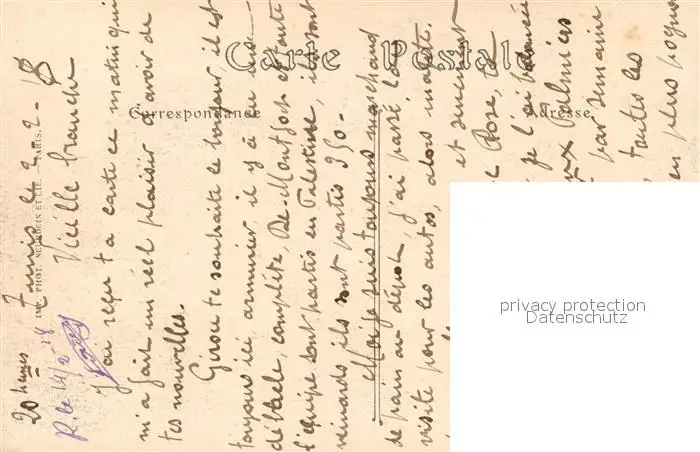 Carte Postale
Correspondance
Adresse
IMP. PHOT. NEURDEIN ET CIE. — PARIS.
20 heures
Tunis le 2-2-18
R. le 14/2-18
Vieille branche
J'ai reçu ta carte ce matin qui
m'a fait un réel plaisir d'avoir de
tes nouvelles.
Girou te souhaite le bonjour, il est
toujours ici armurier, il y a eu une
débacle, complète, De-Montfort et toute
l'équipe sont partis en Palestine, ils sont
veinards, ils sont partis 350-
Moi je suis toujours marchand
de pain au dépôt, j'ai passé la
visite pour les autos, alors inapte.
et
Rose,
je l'ai
Palmiers
par semaine
toutes les
en plus
privacy protection
Datenschutz